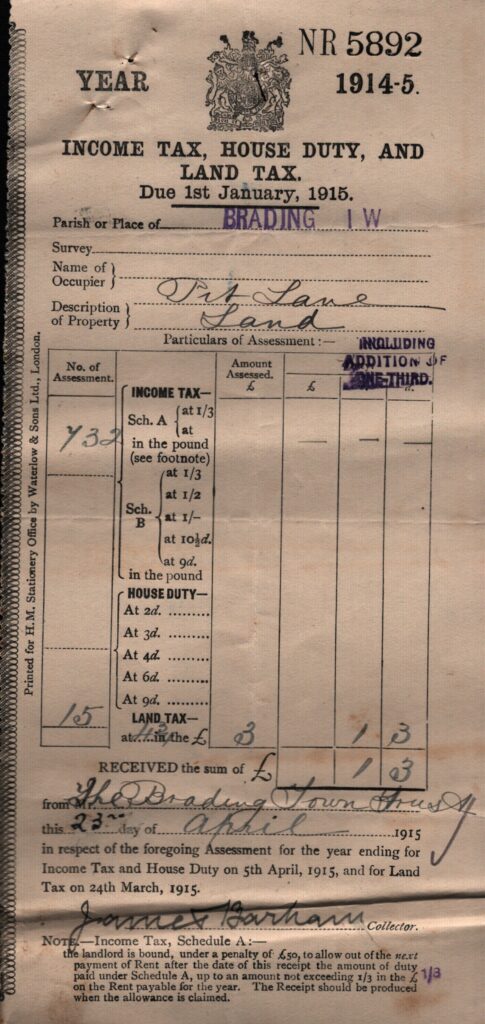 NR 5892
YEAR 1914-5.
INCOME TAX, HOUSE DUTY, AND
LAND TAX.
Due 1st January, 1915.
Parish or Place of BRADING I W
Survey
Name of Occupier }
Pit Lane
Description of Property } Land
Particulars of Assessment:—
INCLUDING
ADDITION OF
ONE-THIRD.
No. of Assessment.
Amount Assessed.
£ £
INCOME TAX—
732 Sch. A { at 1/3
at
in the pound — — —
(see footnote)
Sch. B { at 1/3
at 1/2
at 1/-
at 10½d.
at 9d.
in the pound
HOUSE DUTY—
At 2d. .........
At 3d. .........
At 4d. .........
At 6d. .........
At 9d. .........
15 LAND TAX—
at in the £ 3 1 3
RECEIVED the sum of £ 1 3
from The Brading Town Trust
this 23rd day of April 1915
in respect of the foregoing Assessment for the year ending for
Income Tax and House Duty on 5th April, 1915, and for Land
Tax on 24th March, 1915.
James Barham Collector.
NOTE.—Income Tax, Schedule A:—
the landlord is bound, under a penalty of £50, to allow out of the next
payment of Rent after the date of this receipt the amount of duty
paid under Schedule A, up to an amount not exceeding 1/3 in the £ 1/3
on the Rent payable for the year. The Receipt should be produced
when the allowance is claimed.
Printed for H.M. Stationery Office by Waterlow & Sons Ltd., London.